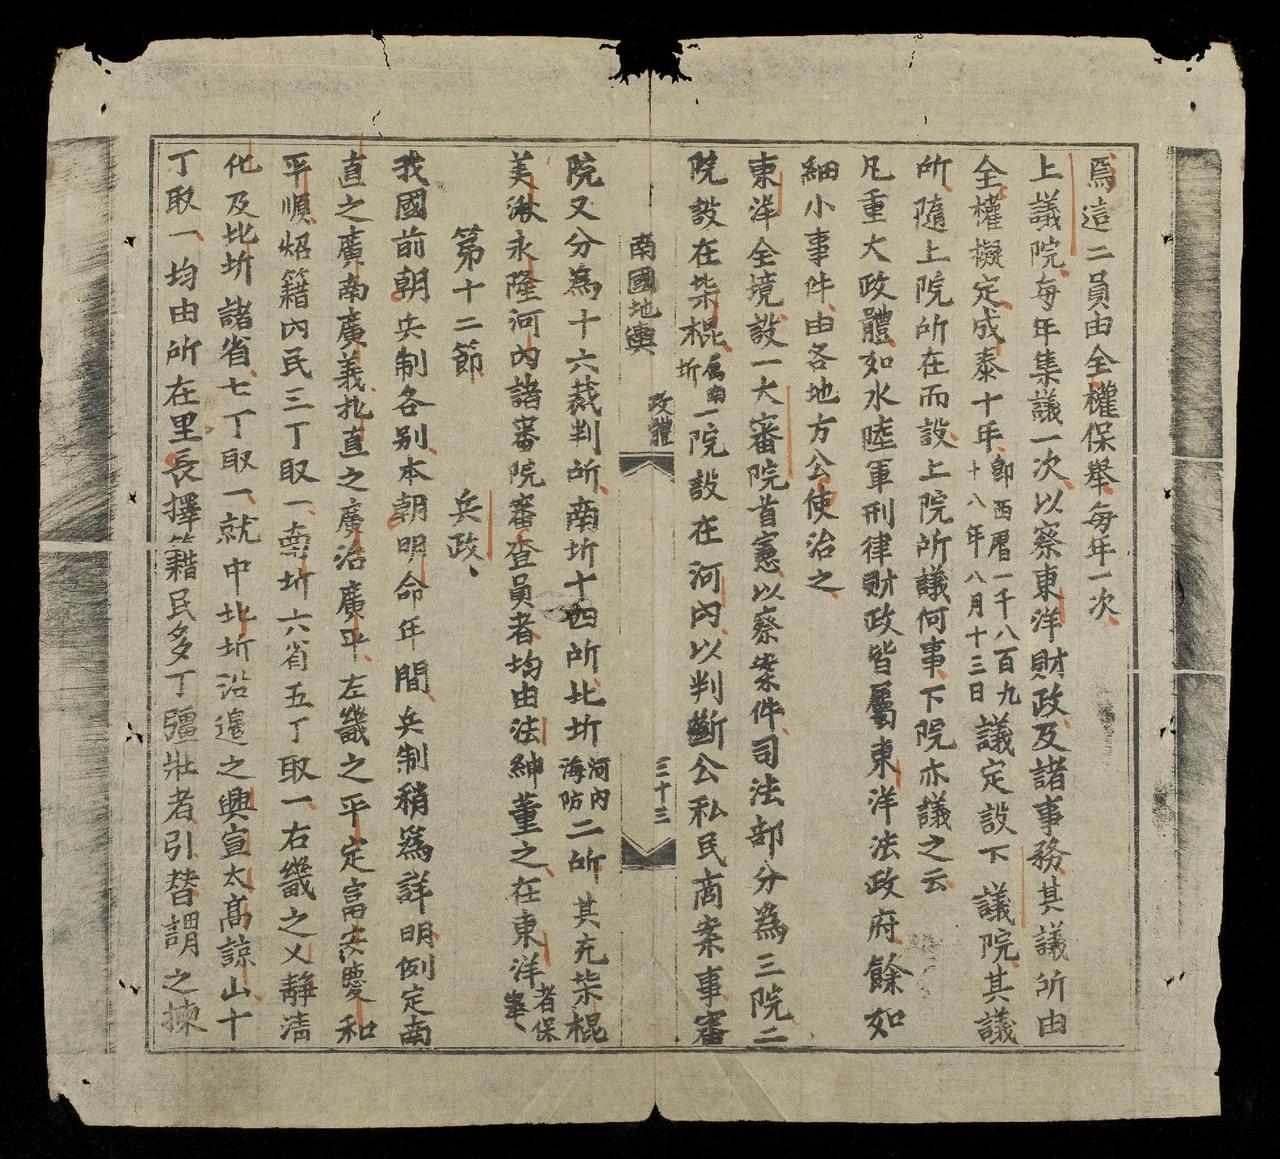 焉這二員由全權保舉每年一次
上議院每年集議一次以察東洋財政及諸事務其議所由
全權擬定成泰十年即西曆一千八百九十八年八月十三日議定設下議院其議
所隨上院所在而設上院所議何事下院亦議之云
凡重大政體如水陸軍刑律財政皆屬東洋法政府餘如
細小事件由各地方公使治之
東洋全境設一大審院首憲以察案件司法部分為三院二
院設在柴棍屬南圻一院設在河內以判斷公私民商案事審
南國地輿
政體
三十三
院又分為十六裁判所南圻十四所北圻河內海防二所其充柴棍
美湫永隆河內諸審院審查員者均由法紳董之在東洋者保舉
第十二節 兵政
我國前朝兵制各別本朝明命年間兵制稍為詳明例定南
直之廣南廣義北直之廣治廣平左畿之平定富安慶和
平順炤籍內民三丁取一南圻六省五丁取一右畿之乂靜清
化及北圻諸省七丁取一就中北圻沿邊之興宣太高諒山十
丁取一均由所在里長擇籍民多丁彊壯者引替謂之揀